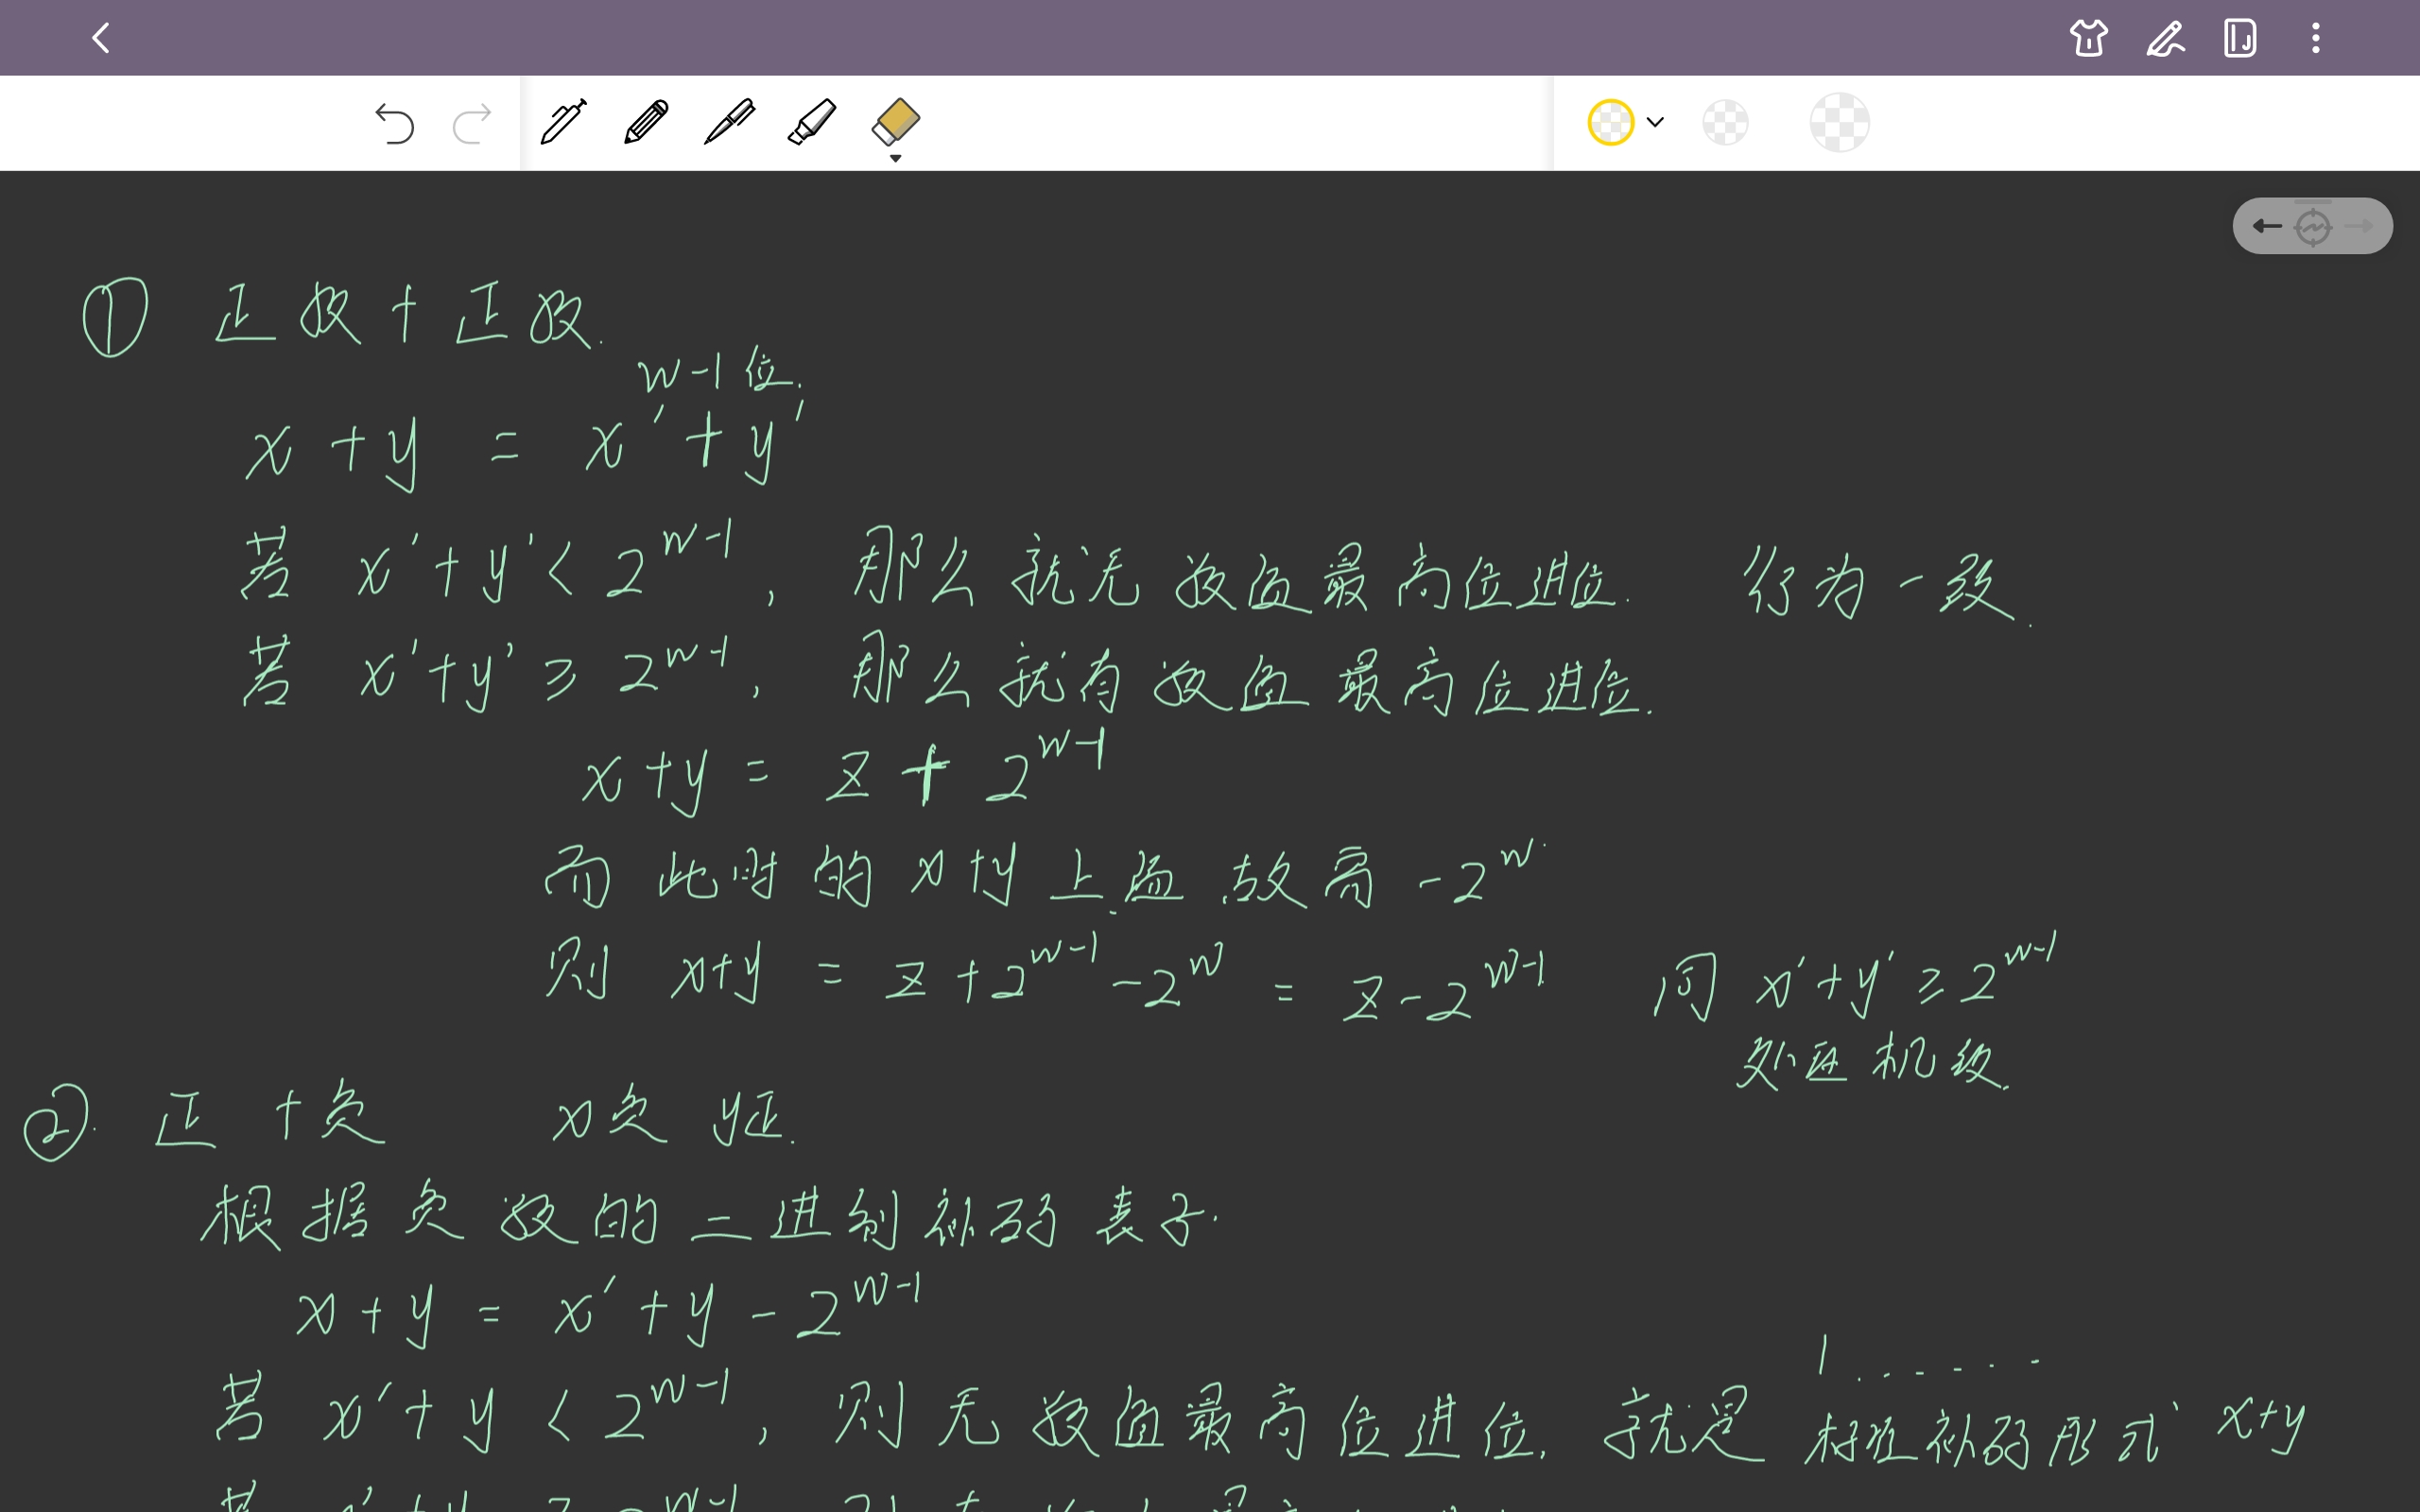 ① 正数+正数.
w-1位.
x+y = x'+y'
若 x'+y' < 2^{w-1}, 那么就无数值最高位进位. 行为一致.
若 x'+y' ≥ 2^{w-1}, 那么就有数值最高位进位.
x+y = z + 2^{w-1}
而此时的 x+y 上溢. 故需 -2^w.
则 x+y = z+2^{w-1}-2^w = z-2^{w-1} 同 x'+y' ≥ 2^{w-1}
②. 正+负 x负 y正.
根据负数的二进制补码表示.
x+y = x'+y-2^{w-1}
1 . . - - - -
若 x'+y < 2^{w-1}, 则无数值最高位进位, 就是 补码形式 x+y